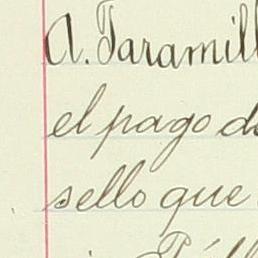 A. Jaramill
el pago d
sello que